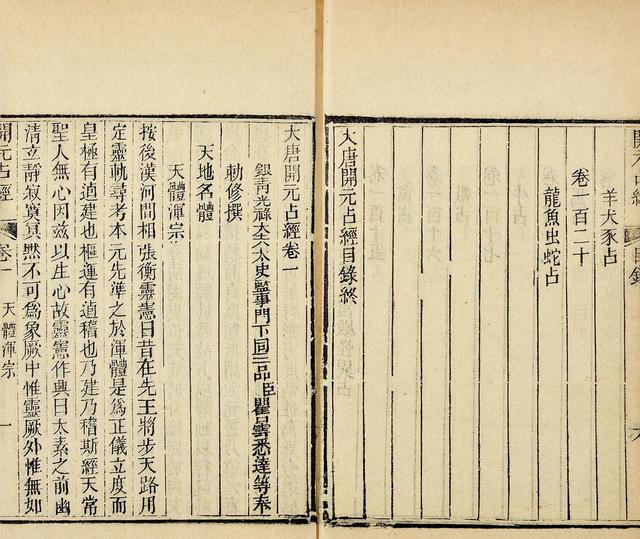 開元占經 目錄
羊犬豕占
卷一百二十
龍魚虫蛇占
大唐開元占經目錄終
大唐開元占經卷一
銀青光祿大夫太史監事門下同三品臣瞿曇悉達等奉
勅修撰
天地名體
天體渾宗
按後漢河間相張衡靈憲曰昔在先王將步天路用
定靈軌尋考本元先準之於渾體是爲正儀立度而
皇極有逌建也樞運有逌稽也乃建乃稽斯經天常
聖人無心因兹以生心故靈憲作興曰太素之前幽
清立靜寂寞冥黙不可爲象厥中惟靈厥外惟無如
開元占經 卷一 天體渾宗 一